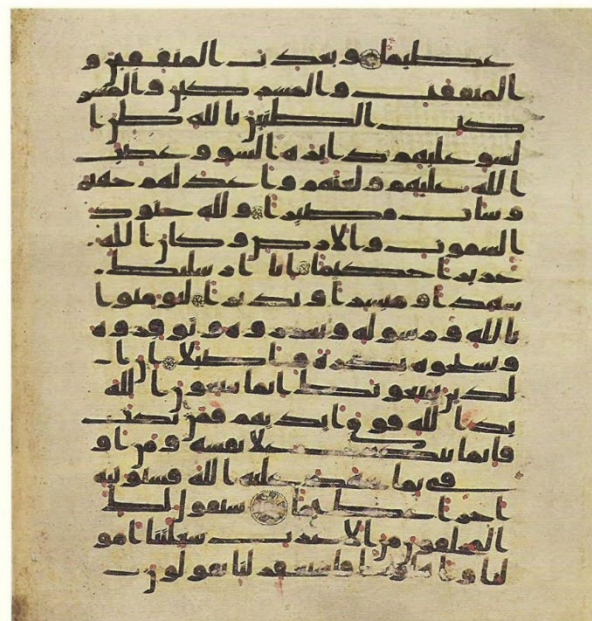 عظيما ويعذب المنفقين و
المنفقت والمشركين والمشر
كت الظنين بالله ظن ا
لسو عليهم دايره السو وغضب
الله عليهم ولعنهم واعد لهم جهنم
وسات مصيرا ولله جنود
السموت والارض وكان الله
عزيزا حكيما انا ارسلنك
شهدا ومبشرا ونذيرا لتومنوا
بالله ورسوله وتعزروه وتوقروه
وتسبحوه بكره واصيلا ان ا
لذين يبيعونك انما يبيعون الله
يد الله فوق ايديهم فمن نكث
فانما ينكث على نفسه ومن او
في بما عهد عليه الله فسنوتيه
اجرا عظيما سيقول لك
المخلفون من الاعرب شغلتنا امو
لنا واهلونا فاستغفر لنا يقولون